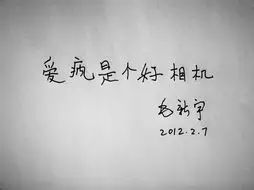 爱疯是个好相机
杨新宇
2012.2.7